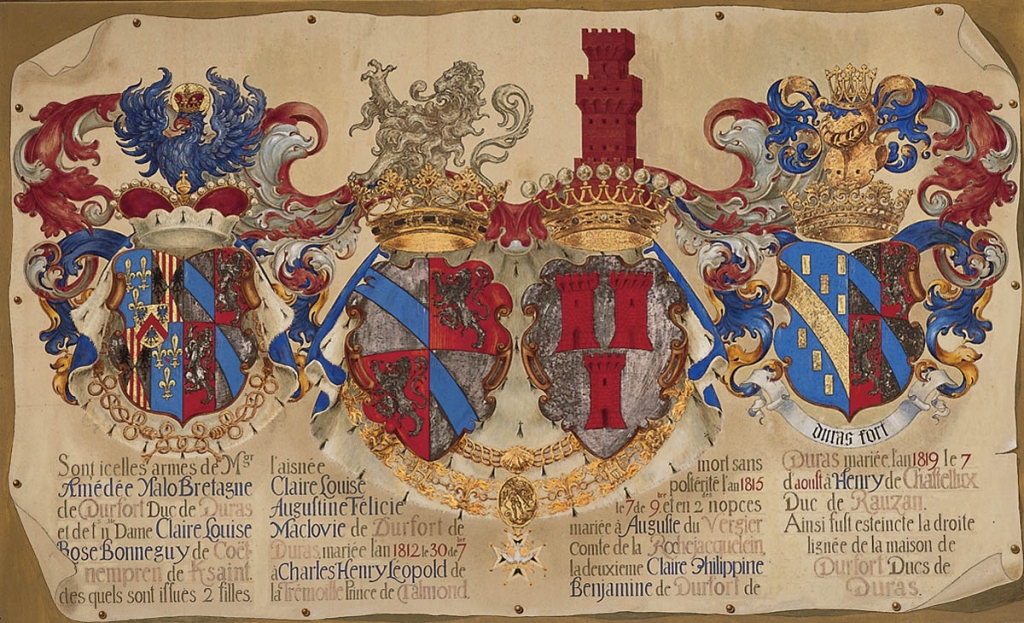 duras fort
Sont icelles armes de Mgr
Amédée Malo Bretagne
de Durfort Duc de Duras
et de ttn Dame Claire Louise
Rose Bonneguy de Coët
nempren de Ksaint.
des quels sont issues 2 filles.
l'aisnée
Claire Louise
Augustine Félicie
Maclovie de Durfort de
Duras, mariée l'an 1812 le 30 de 7
à Charles Henry Léopold de
la Trémoille Prince de Talmond.
mort sans
postérité l'an 1815
le 7 de 9bre et en 2des nopces
mariée à Auguste du Vergier
Comte de la Rochejacquelein,
la deuxieme Claire Philippine
Benjamine de Durfort de
Duras mariée l'an 1819 le 7
d'aoust à Henry de Chastellux
Duc de Rauzan.
Ainsi fust esteincte la droite
lignée de la maison de
Durfort Ducs de
Duras.